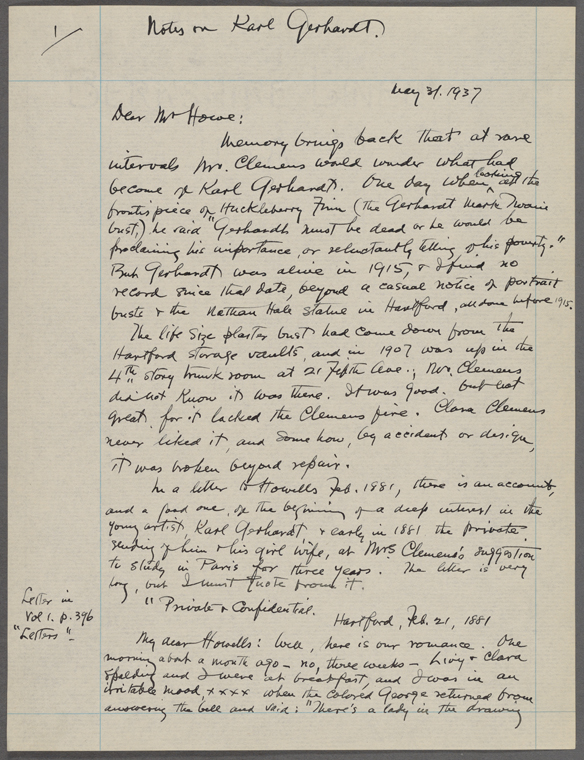 1/
Notes on Karl Gerhardt.
May 31. 1937
Dear Mr Howe:
Memory brings back that at rare
intervals Mr. Clemens would wonder what had
become of Karl Gerhardt. One day when looking at the
frontispiece of Huckleberry Finn (the Gerhardt Mark Twain
bust,) he said "Gerhardt must be dead or he would be
proclaiming his importance, or reluctantly telling of his poverty."
But Gerhardt was alive in 1915, & I find no
record since that date, beyond a casual notice of portrait
busts & the Nathan Hale statue in Hartford, all done before 1915.
The life size plaster bust had come down from the
Hartford storage vaults, and in 1907 was up in the
4th story trunk room at 21 Fifth Ave.; Mr. Clemens
did not know it was there. It was good, but not
great, for it lacked the Clemens fire. Clara Clemens
never liked it, and somehow, by accident or design,
it was broken beyond repair.
In a letter to Howells Feb. 1881, there is an account,
and a good one, of the beginning of a deep interest in the
young artist Karl Gerhardt, & early in 1881 the private
sending of him & his girl wife, at Mrs Clemens's suggestion
to study in Paris for three years. The letter is very
long, but I must quote from it.
Letter in
Vol 1. p. 396
"Letters"
"Private & Confidential.
Hartford, Feb. 21, 1881
My dear Howells: Well, here is our romance. One
morning about a month ago — no, three weeks — Livy & Clara
Spalding and I were at breakfast, and I was in an
irritable mood, xxxx when the colored George returned from
answering the bell and said: "There's a lady in the drawing